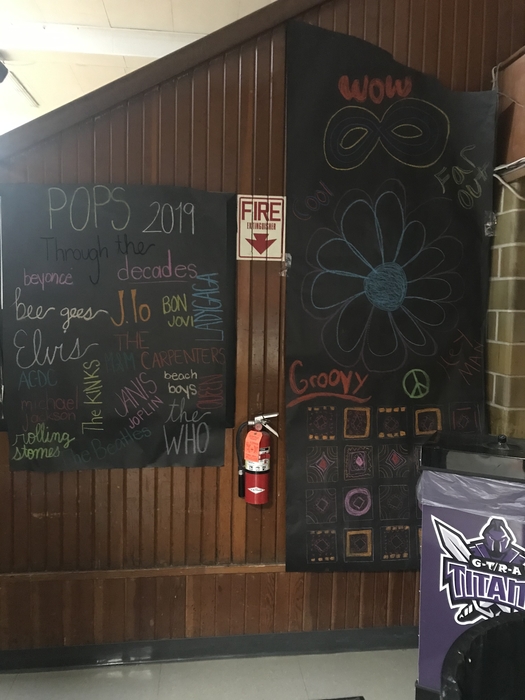 POPS 2019
Through the
decades
beyonce
bee gees
J.lo
BON
JOVI
LADY GAGA
Elvis
THE
CARPENTERS
AC-DC
The KINKS
JANIS
JOPLIN
beach
boys
michael
jackson
the
WHO
rolling
stones
The Beatles
FIRE
EXTINGUISHER
WOW
FAR
OUT
COOL
HEY
MAN
GROOVY
G-T/R-A
TITAN